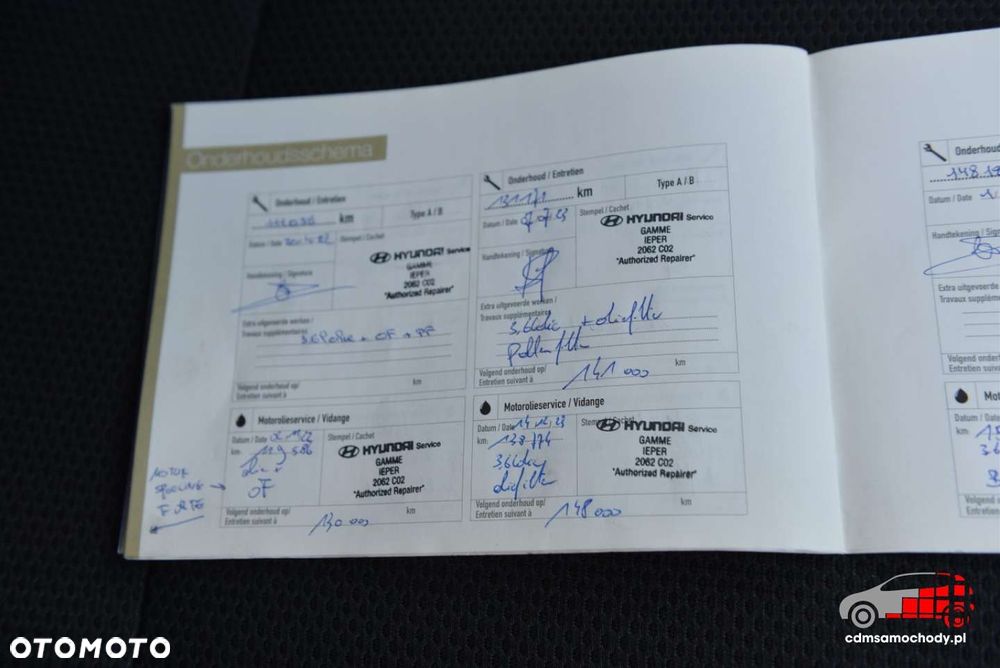 Onderhoudsschema
Onderhoud / Entretien
km
Type A / B
Datum / Date
Stempel / Cachet
HYUNDAI Service
GAMME
IEPER
2062 C02
"Authorized Repairer"
Handtekening / Signature
Extra uitgevoerde werken /
Travaux supplémentaires
+ OF + PF
Volgend onderhoud op/
Entretien suivant à
km
Motorolieservice / Vidange
Datum / Date
Stempel / Cachet
km:
119 586
OF
HYUNDAI Service
GAMME
IEPER
2062 C02
"Authorized Repairer"
MOTOR
SPOELING
Volgend onderhoud op/
Entretien suivant à
130 000
km
Onderhoud / Entretien
km
Type A / B
Datum / Date 07.07.23
Stempel / Cachet
HYUNDAI Service
GAMME
IEPER
2062 C02
"Authorized Repairer"
Handtekening / Signature
Extra uitgevoerde werken /
Travaux supplémentaires
+ oliefilter
Pollenfilter
Volgend onderhoud op/
Entretien suivant à
141 000
km
Motorolieservice / Vidange
Datum / Date 14.12.23
Stempel / Cachet
km: 138174
oliefilter
HYUNDAI Service
GAMME
IEPER
2062 C02
"Authorized Repairer"
Volgend onderhoud op/
Entretien suivant à
148 000
km
Onderhoud
148.19
Datum / Date
Handtekening / Sign
Extra uitgevoerde
Travaux supplémen
Volgend onderhoud
Entretien suivan
Mot
Datum / Date
km:
Volgend onderhou
Entretien suivant
OTOMOTO
cdmsamochody.pl